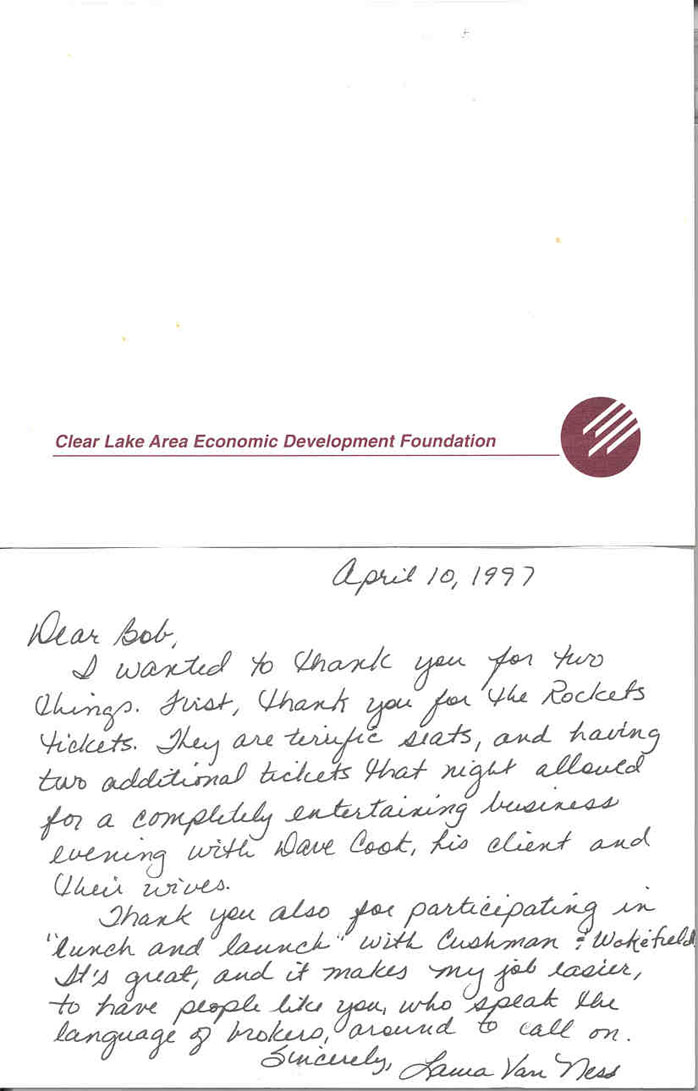 Clear Lake Area Economic Development Foundation
April 10, 1997
Dear Bob,
I wanted to thank you for two
things. First, thank you for the Rockets
tickets. They are terrific seats, and having
two additional tickets that night allowed
for a completely entertaining business
evening with Dave Cook, his client and
their wives.
Thank you also for participating in
"lunch and launch" with Cushman & Wakefield.
It's great, and it makes my job easier,
to have people like you, who speak the
language of brokers, around to call on.
Sincerely, Laura Van Ness